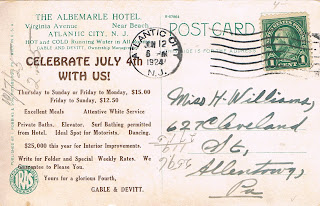 THE ALBEMARLE HOTEL
Virginia Avenue Near Beach
ATLANTIC CITY, N. J.
HOT and COLD Running Water in All
GABLE AND DEVITT, Ownership Management
CELEBRATE JULY 4th
WITH US!
Thursday to Sunday or Friday to Monday, $15.00
Friday to Sunday, $12.50
Excellent Meals Attentive White Service
Private Baths. Elevator. Surf Bathing permitted
from Hotel. Ideal Spot for Motorists. Dancing.
$25,000 this year for Interior Improvements.
Write for Folder and Special Weekly Rates. We
Guarantee to Please You.
Yours for a glorious Fourth,
GABLE & DEVITT.
POST CARD
ATLANTIC CITY
JUN 12
6 PM
1924
N.J.
1 1
Miss H. Williams,
627 Cleveland
St,
Allentown,
Pa